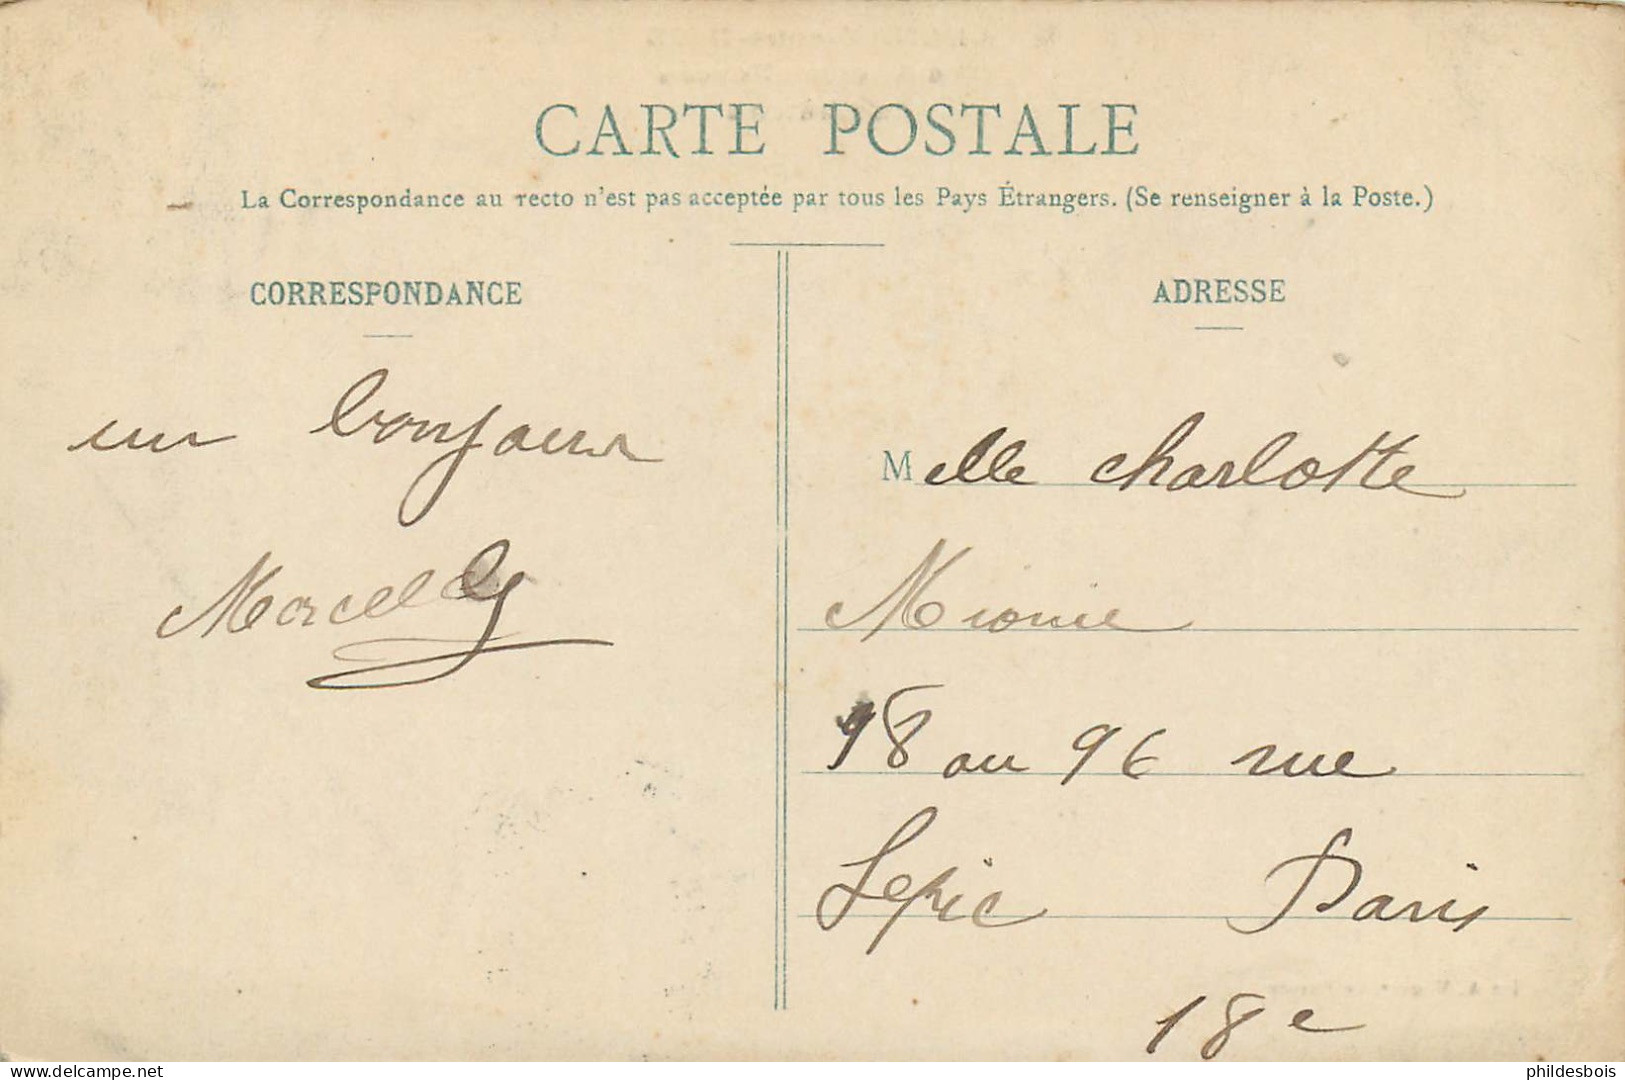 CARTE POSTALE
La Correspondance au recto n'est pas acceptée par tous les Pays Étrangers. (Se renseigner à la Poste.)
CORRESPONDANCE
un bonjour
Marcelle
ADRESSE
Melle charlotte
Mionie
98 ou 96 rue
Lepic Paris
18e
delcampe.net
phildesbois